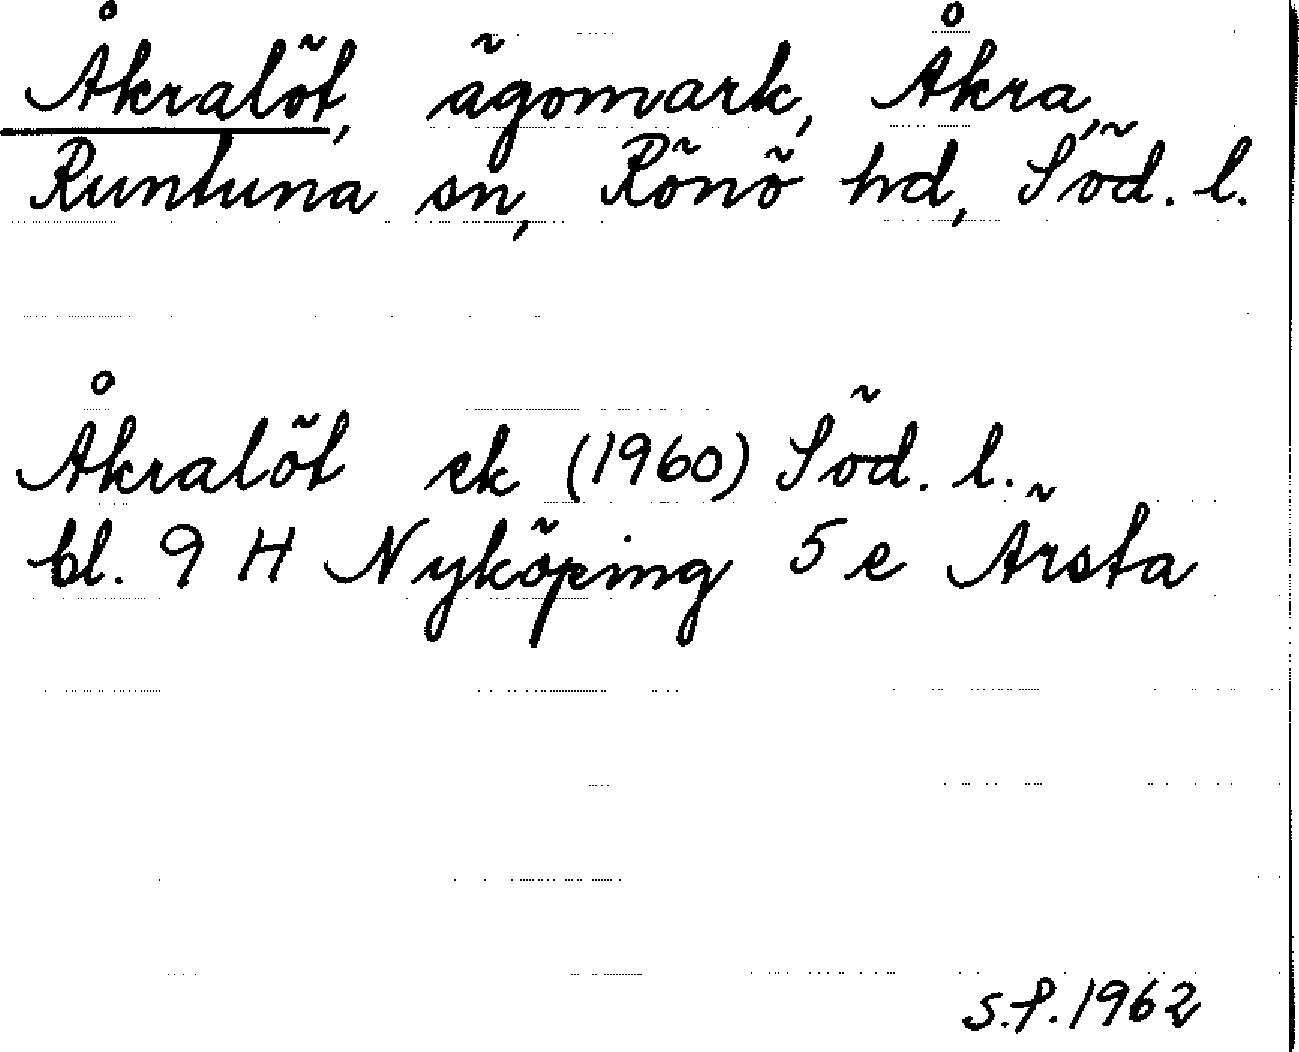 Åkralöt, ägomark, Åkra,
Runtuna sn, Rönö hd, Söd. l.
Åkralöt ek (1960) Söd. l.
bl. 9 H Nyköping 5 e Ärsta
S.P. 1962